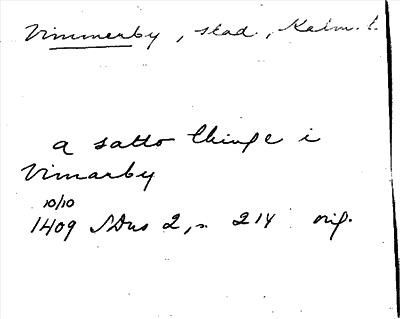 Vimmerby, stad., Kalm. l.
a satto thinge i
Vimarby
10/10
1409 SDns 2, s. 214 orig.